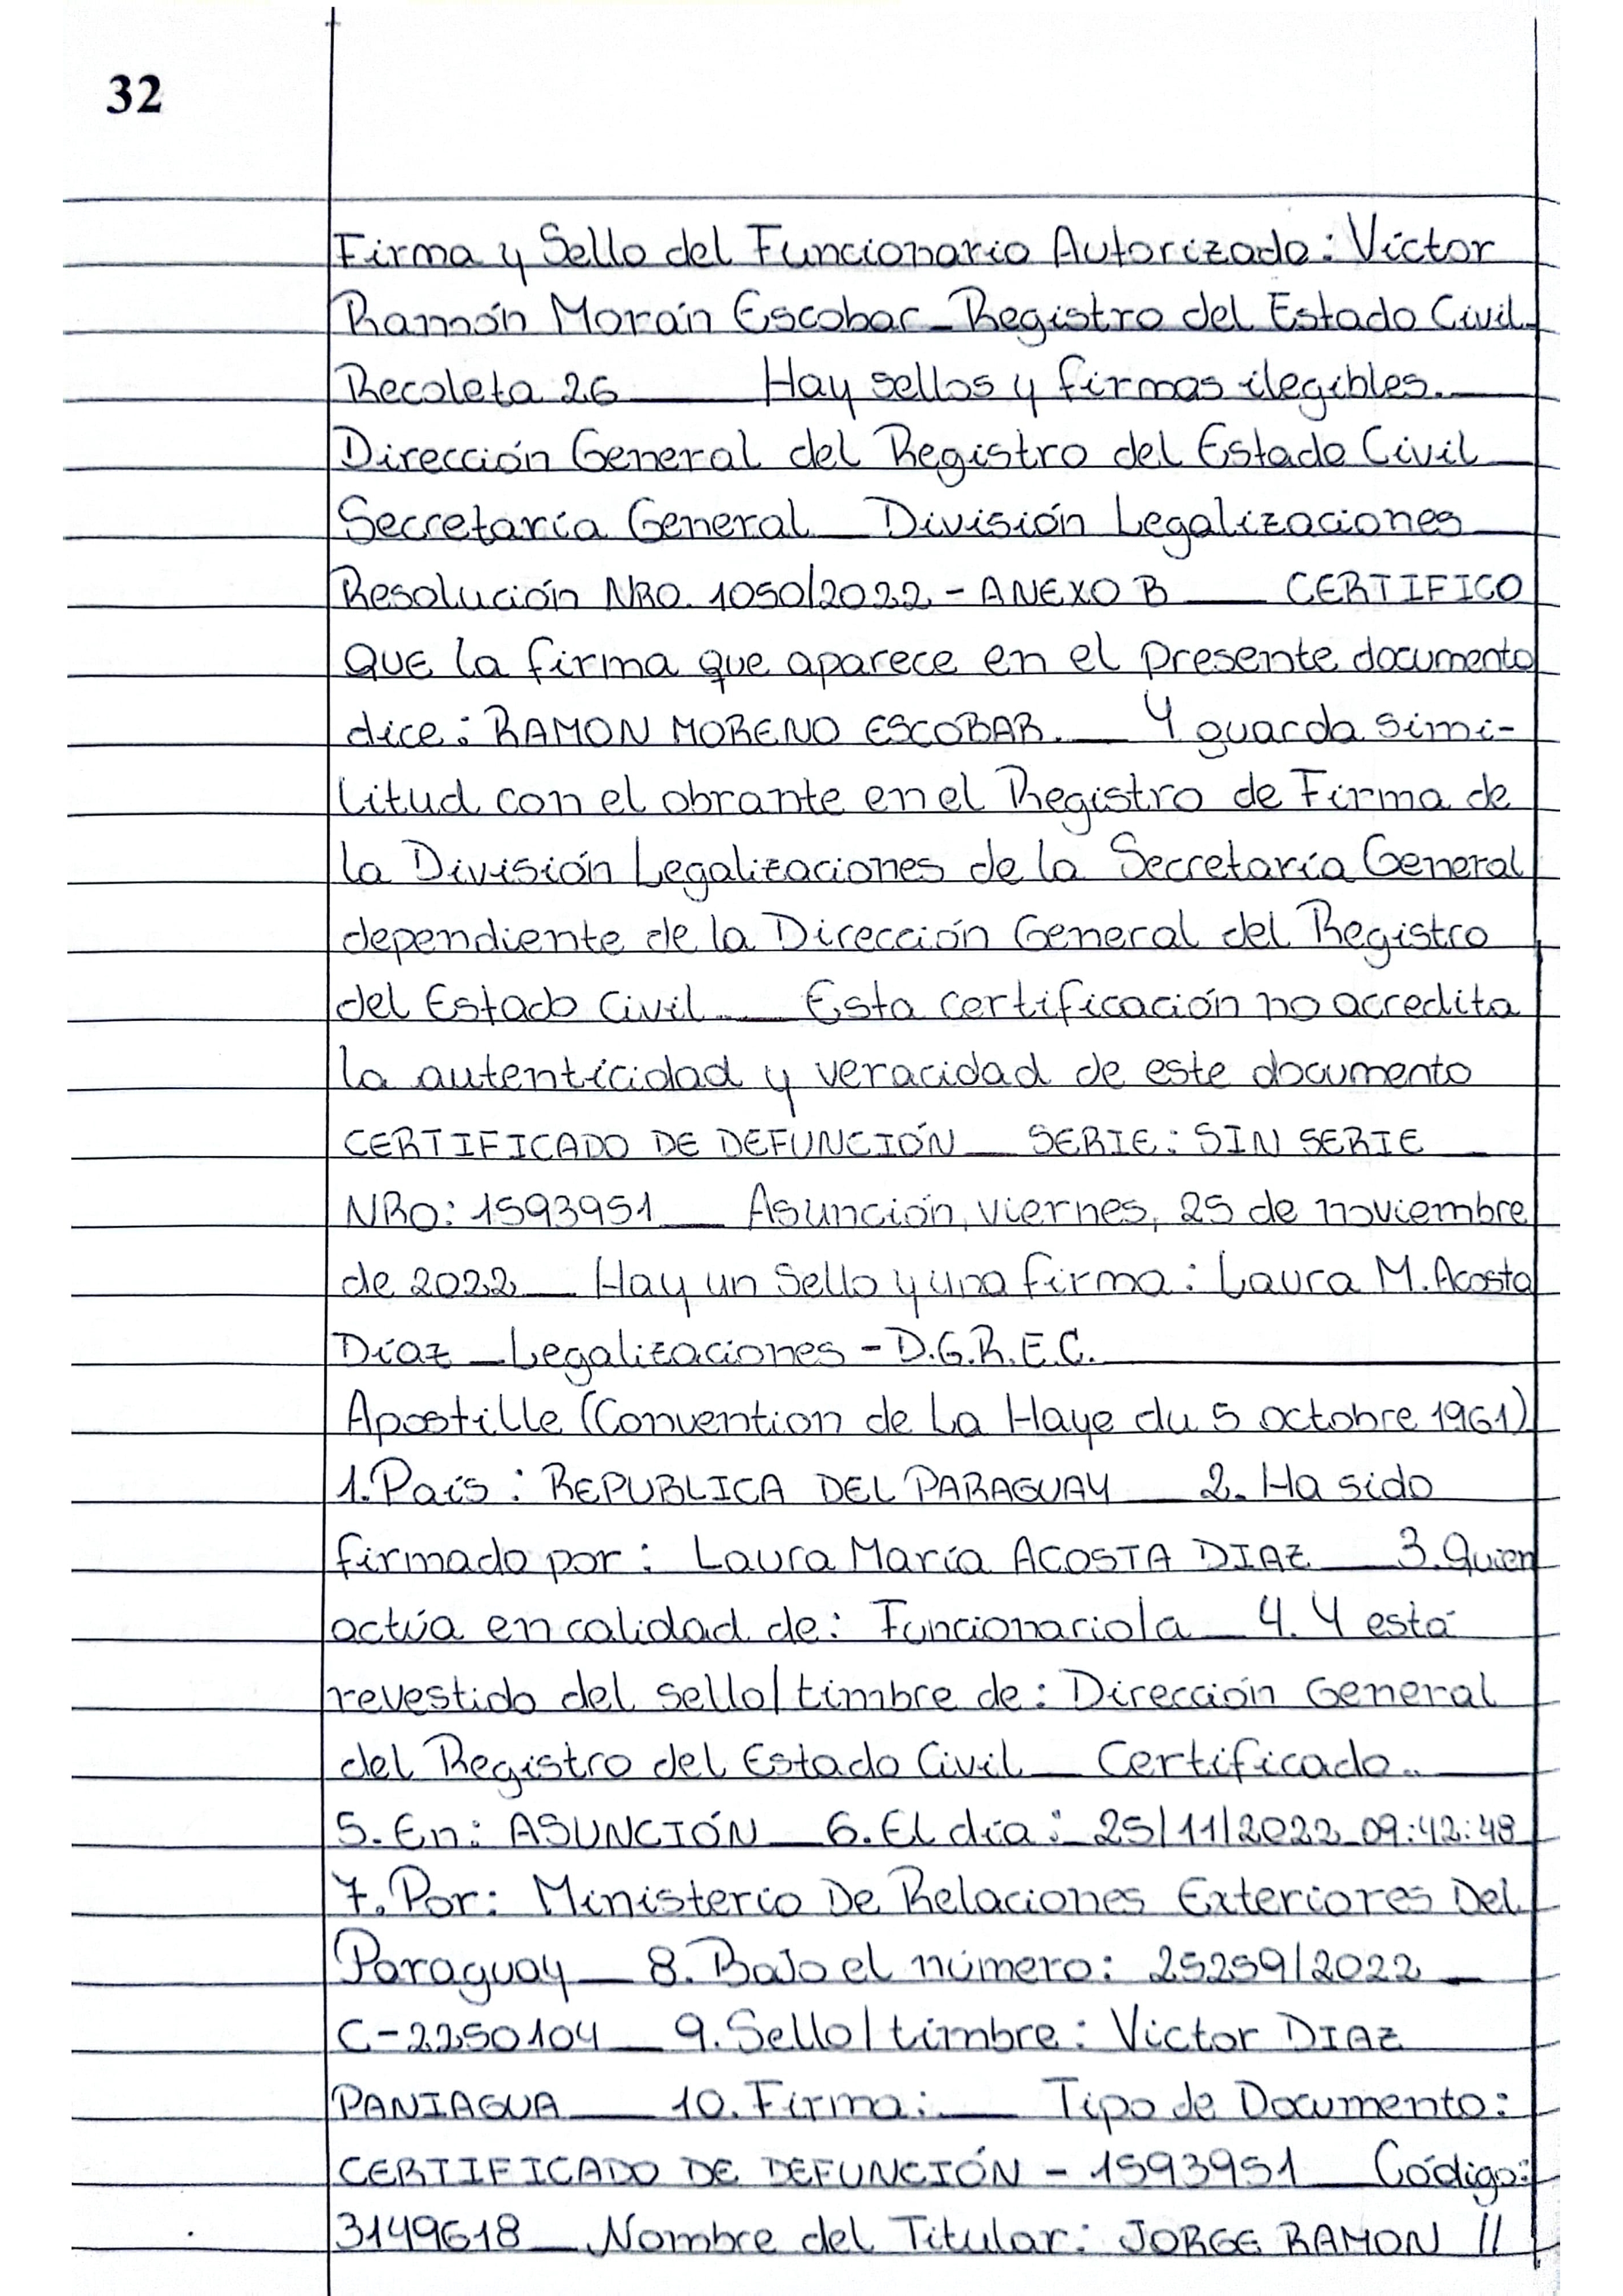 32
Firma y Sello del Funcionario Autorizado: Víctor
Ramón Morán Escobar _ Registro del Estado Civil
Recoleta 26 ____ Hay sellos y firmas ilegibles. __
Dirección General del Registro del Estado Civil __
Secretaría General __ División Legalizaciones __
Resolución NRO. 1050/2022 - ANEXO B __ CERTIFICO
QUE la firma que aparece en el presente documento
dice: RAMON MORENO ESCOBAR. __ Y guarda simi-
litud con el obrante en el Registro de Firma de
la División Legalizaciones de la Secretaría General
dependiente de la Dirección General del Registro
del Estado Civil. __ Esta certificación no acredita
la autenticidad y veracidad de este documento
CERTIFICADO DE DEFUNCIÓN __ SERIE: SIN SERIE __
NRO: 1593951 __ Asunción, viernes, 25 de noviembre
de 2022 __ Hay un Sello y una firma: Laura M. Acosta
Díaz _ Legalizaciones - D.G.R.E.C. ____
Apostille (Convention de La Haye du 5 octobre 1961)
1. País: REPUBLICA DEL PARAGUAY __ 2. Ha sido
firmado por: Laura María ACOSTA DIAZ __ 3. Quien
actúa en calidad de: Funcionario/a __ 4. Y está
revestido del sello/timbre de: Dirección General
del Registro del Estado Civil __ Certificado.. __
5. En: ASUNCIÓN __ 6. El día: 25/11/2022 09:42:48
7. Por: Ministerio De Relaciones Exteriores Del
Paraguay __ 8. Bajo el número: 25259/2022 __
C-2250104 __ 9. Sello/timbre: Victor DIAZ
PANIAGUA __ 10. Firma: __ Tipo de Documento:
CERTIFICADO DE DEFUNCIÓN - 1593951 __ Código:
3149618 __ Nombre del Titular: JORGE RAMON //